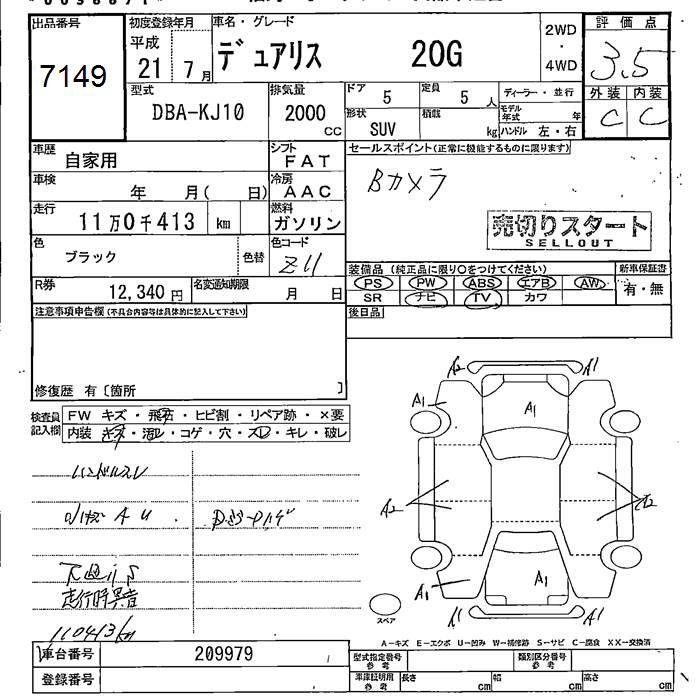 出品番号
7149
初度登録年月
平成
21年 7月
車名・グレード
デュアリス 20G
2WD
・
4WD
評価点
3.5
外装 内装
C C
型式
DBA-KJ10
排気量
2000
CC
ドア
5
定員
5 人
ディーラー・並行
形状
SUV
積載
kg
モデル年式 年
ハンドル 左・右
車歴
自家用
シフト
FAT
セールスポイント(正常に機能するものに限ります)
Bカメラ
車検
年 月( 日)
冷房
AAC
走行
11万0千413 km
燃料
ガソリン
売切りスタート
SELLOUT
色
ブラック
色替
色コード
Z11
装備品 (純正品に限り○をつけてください)
新車保証書
PS PW ABS エアB AW
有・無
SR ナビ TV カワ
R券
12,340 円
名変通知期限
月 日
後日品
注意事項申告欄(不具合内容等は具体的に記入して下さい)
修復歴 有〔箇所 〕
検査員
記入欄
FW キズ・飛石・ヒビ割・リペア跡・×要
内装 キズ・汚レ・コゲ・穴・スレ・キレ・破レ
ハンドルスレ
下回りS
走行時異音
110413km
A2 A1
A1 A1
A2 A2
A1 A1
A1 A1
スペア
A−キズ E−エクボ U−凹み W−補修跡 S−サビ C−腐食 XX−交換済
車台番号
209979
型式指定番号
参考
類別区分番号
参考
登録番号
車庫証明用
参考
長さ cm
幅 cm
高さ cm